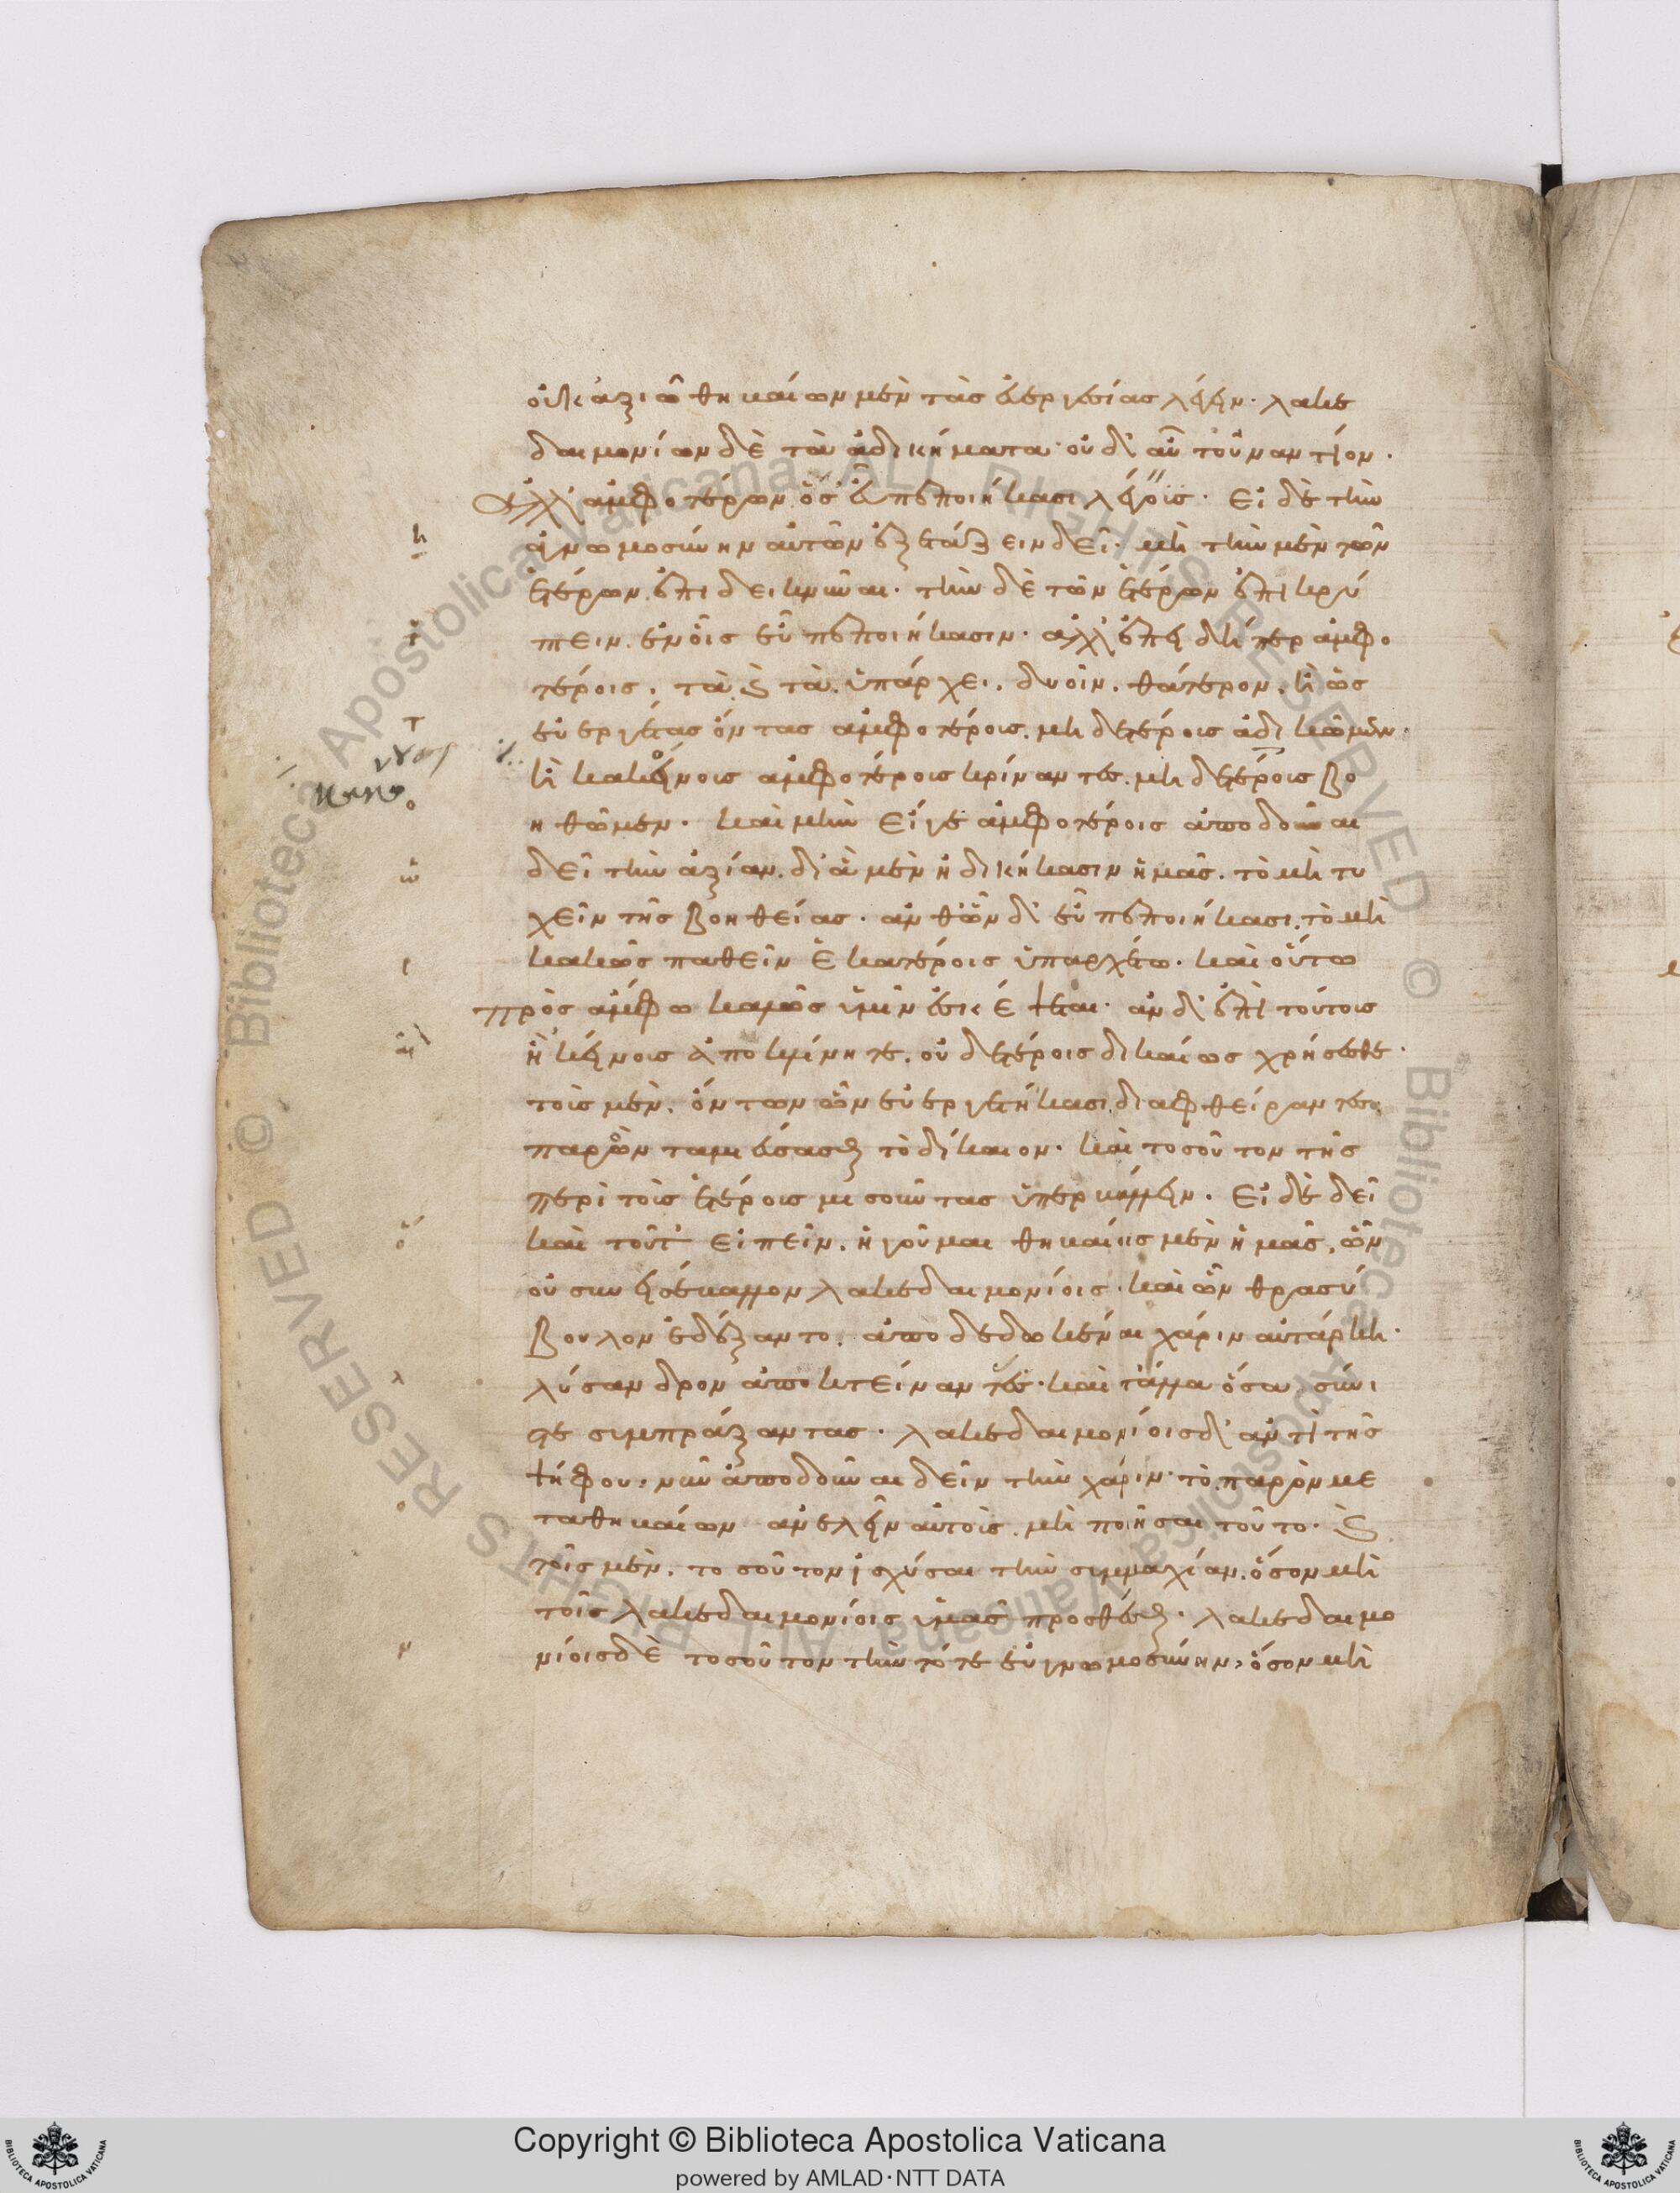 οὐκ ἀξιῶ θηβαίων μὲν τὰς εὐεργεσίας λέγειν· λακε
δαιμονίων δὲ τὰ ἀδικήματα· οὐδ' αὖ τοὐναντίον·
ἀλλ' ἀμφοτέρων ὅσ' εὖ πεποιήκασι λέγοις· εἰ δὲ τὴν
ἀγνωμοσύνην αὐτῶν ἐξετάζειν δεῖ· μὴ τὴν μὲν τῶν
ἑτέρων ἐπιδεικνύναι· τὴν δὲ τῶν ἑτέρων ἐπικρύ
πτειν. ἐν οἷς εὖ πεποιήκασιν· ἀλλ' ἐπειδήπερ ἀμφο
τέροις. ταῦτα ὑπάρχει. δυοῖν. θάτερον. ἢ ὡς
εὐεργέτας ὄντας ἀμφοτέροις. μηδετέροις ἀδικῶμεν·
ἢ κακείνοις ἀμφοτέροις κρίναντες. μηδετέροις βο
ηθῶμεν· καὶ μὴν εἴγε ἀμφοτέροις ἀποδοῦναι
δεῖ τὴν ἀξίαν. δι' ἃ μὲν ἠδικήκασιν ἡμᾶς. τὸ μὴ τυ
χεῖν τῆς βοηθείας· ἀνθ' ὧν δ' εὖ πεποιήκασι. τὸ μὴ
κακῶς παθεῖν ἑκατέροις ὑπαρχέτω· καὶ οὕτω
πρὸς ἄμφω καλῶς ὑμῖν ἐσκέψεται· ἂν δ' ἐπὶ τούτοις
ἢ κείνοις ἀποκλίνητε. οὐδετέροις δικαίως χρήσεσθε·
τοῖς μὲν. ὄντων ὧν εὐεργετήκασι διαφθείραντες
παρ' ὧν ταμιεύσασθαι τὸ δίκαιον· καὶ τοσοῦτον τῆς
περὶ τοῖς ἑτέροις μισοῦντας ὑπερβάλλειν· εἰ δὲ δεῖ
καὶ τοῦτ' εἰπεῖν. ἡγοῦμαι θηβαίοις μὲν ἡμᾶς. ὧν
οὐ συνεισέβαλλον λακεδαιμονίοις· καὶ ὧν θρασύ
βουλον ἐδέξαντο. ἀποδεδωκέναι χάριν αὐτάρκη·
λύσανδρον ἀποκτείναντες· καὶ τἄλλα ὅσα σύνι
στε συμπράξαντας· λακεδαιμονίοις δ' ἀντὶ τῆς
ψήφου. νῦν ἀποδοῦναι δεῖν τὴν χάριν· τὸ παρὸν με
τὰ θηβαίων ἀνελεῖν αὐτοὺς. μὴ ποιῆσαι τοῦτο· καὶ
τοῖς μὲν. τοσοῦτον ἰσχύσαι τὴν συμμαχίαν. ὅσον μὴ
τοῖς λακεδαιμονίοις ὑμᾶς προσθέσθαι· λακεδαιμο
νίοις δὲ τοσοῦτον τὴν τότε εὐγνωμοσύνην, ὅσον μὴ
Copyright © Biblioteca Apostolica Vaticana
powered by AMLAD·NTT DATA